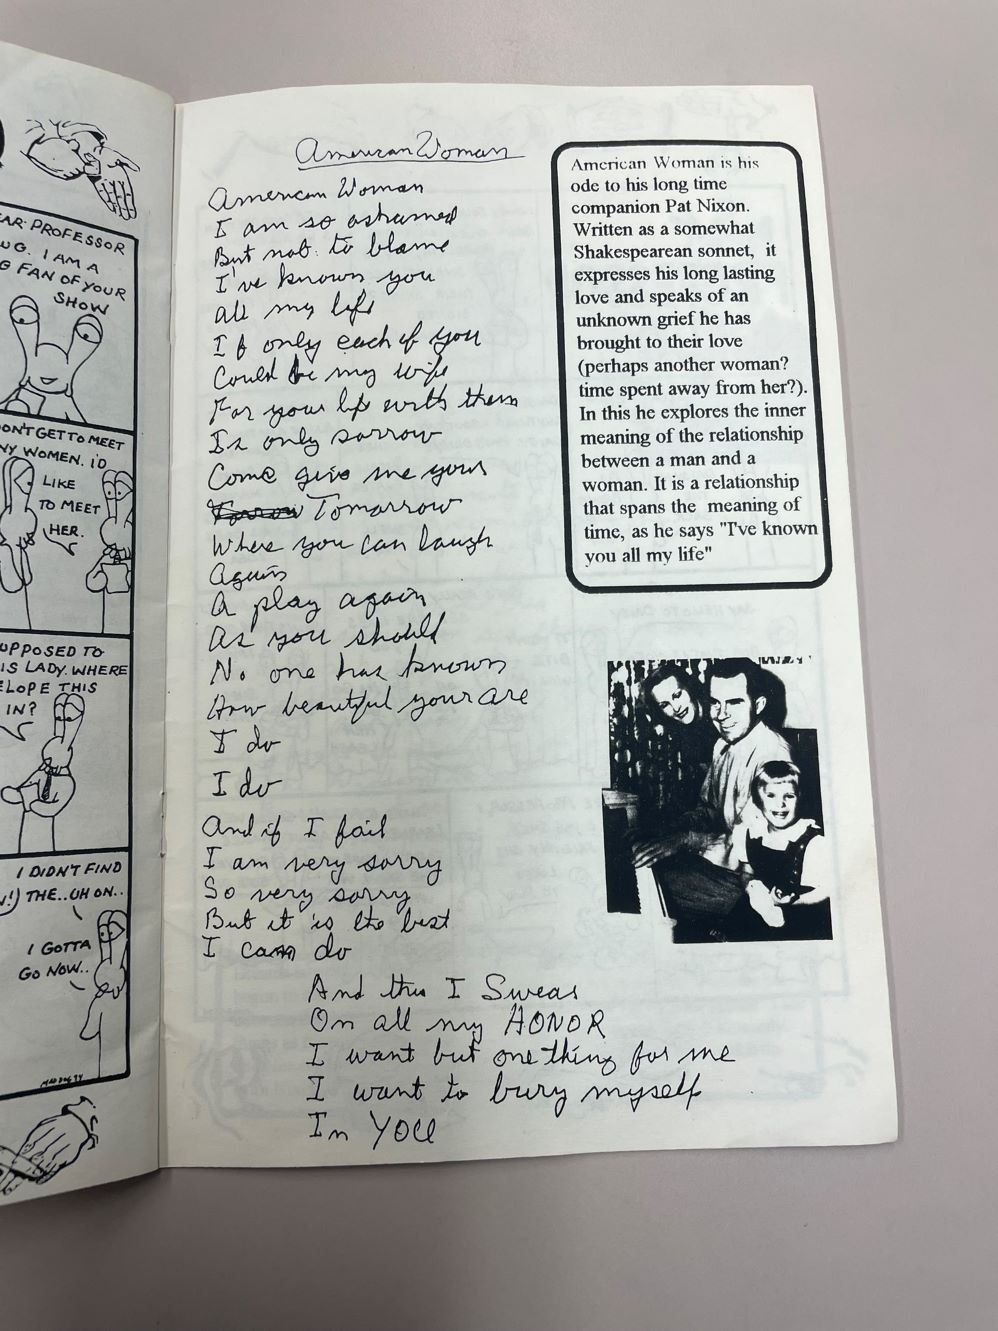 EAR PROFESSOR
UG. I AM A
G FAN OF YOUR
SHOW
ON'T GET TO MEET
NY WOMEN. I'D
LIKE
TO MEET
HER.
UPPOSED TO
IS LADY. WHERE
ELOPE THIS
IN?
I DIDN'T FIND
THE..UH ON..
I GOTTA
GO NOW..
American Woman
American Woman
I am so ashamed
But not to blame
I've known you
all my life
If only each of you
Could be my wife
For your life with them
Is only sorrow
Come give me your
Tomorrow
Where you can laugh
Again
A play again
As you should
No one has known
How beautiful your are
I do
I do
And if I fail
I am very sorry
So very sorry
But it is the best
I can do
And this I Swear
On all my HONOR
I want but one thing for me
I want to bury myself
In YOU
American Woman is his
ode to his long time
companion Pat Nixon.
Written as a somewhat
Shakespearean sonnet, it
expresses his long lasting
love and speaks of an
unknown grief he has
brought to their love
(perhaps another woman?
time spent away from her?).
In this he explores the inner
meaning of the relationship
between a man and a
woman. It is a relationship
that spans the meaning of
time, as he says "I've known
you all my life"